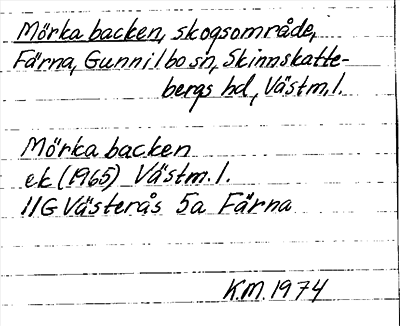 Mörka backen, skogsområde,
Färna, Gunnilbo sn, Skinnskatte-
bergs hd, Västm.l.
Mörka backen
ek (1965) Västm.l.
11G Västerås 5a Färna
K.M. 1974